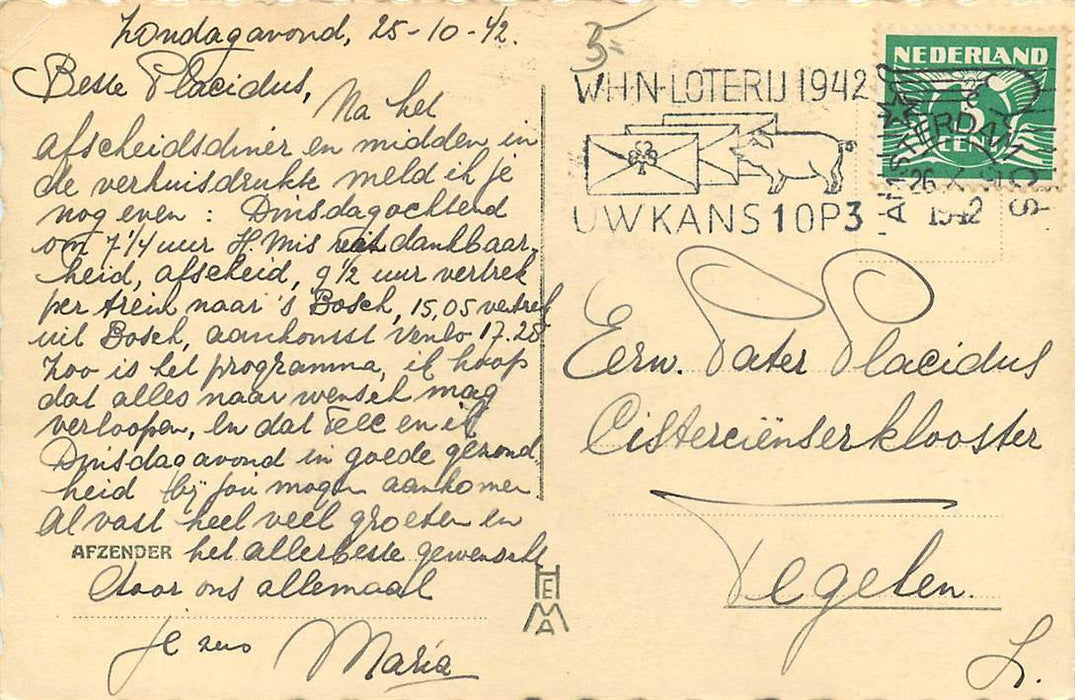 Zondagavond, 25-10-42.
Beste Placidus,
Na het
afscheidsdiner en midden in
de verhuisdrukte meld ik je
nog even : Dinsdagochtend
om 7 1/4 uur H. Mis uit dankbaar-
heid, afscheid, 9 1/2 uur vertrek
per trein naar 's Bosch, 15,05 vertrek
uit Bosch, aankomst Venlo 17.28
Zoo is het programma, ik hoop
dat alles naar wensch mag
verloopen, en dat en ik
Dinsdagavond in goede gezond-
heid bij jou mogen aankomen
Alvast heel veel groeten en
AFZENDER het allerbeste gewenscht
door ons allemaal
Je zus Maria
HEMA
5-
W·H·N-LOTERIJ 1942
UW KANS 1 OP 3
AMSTERDAM
26 X
1942
NEDERLAND
5
CENT
Eerw. Pater Placidus
Cisterciënserklooster
Tegelen.
L.